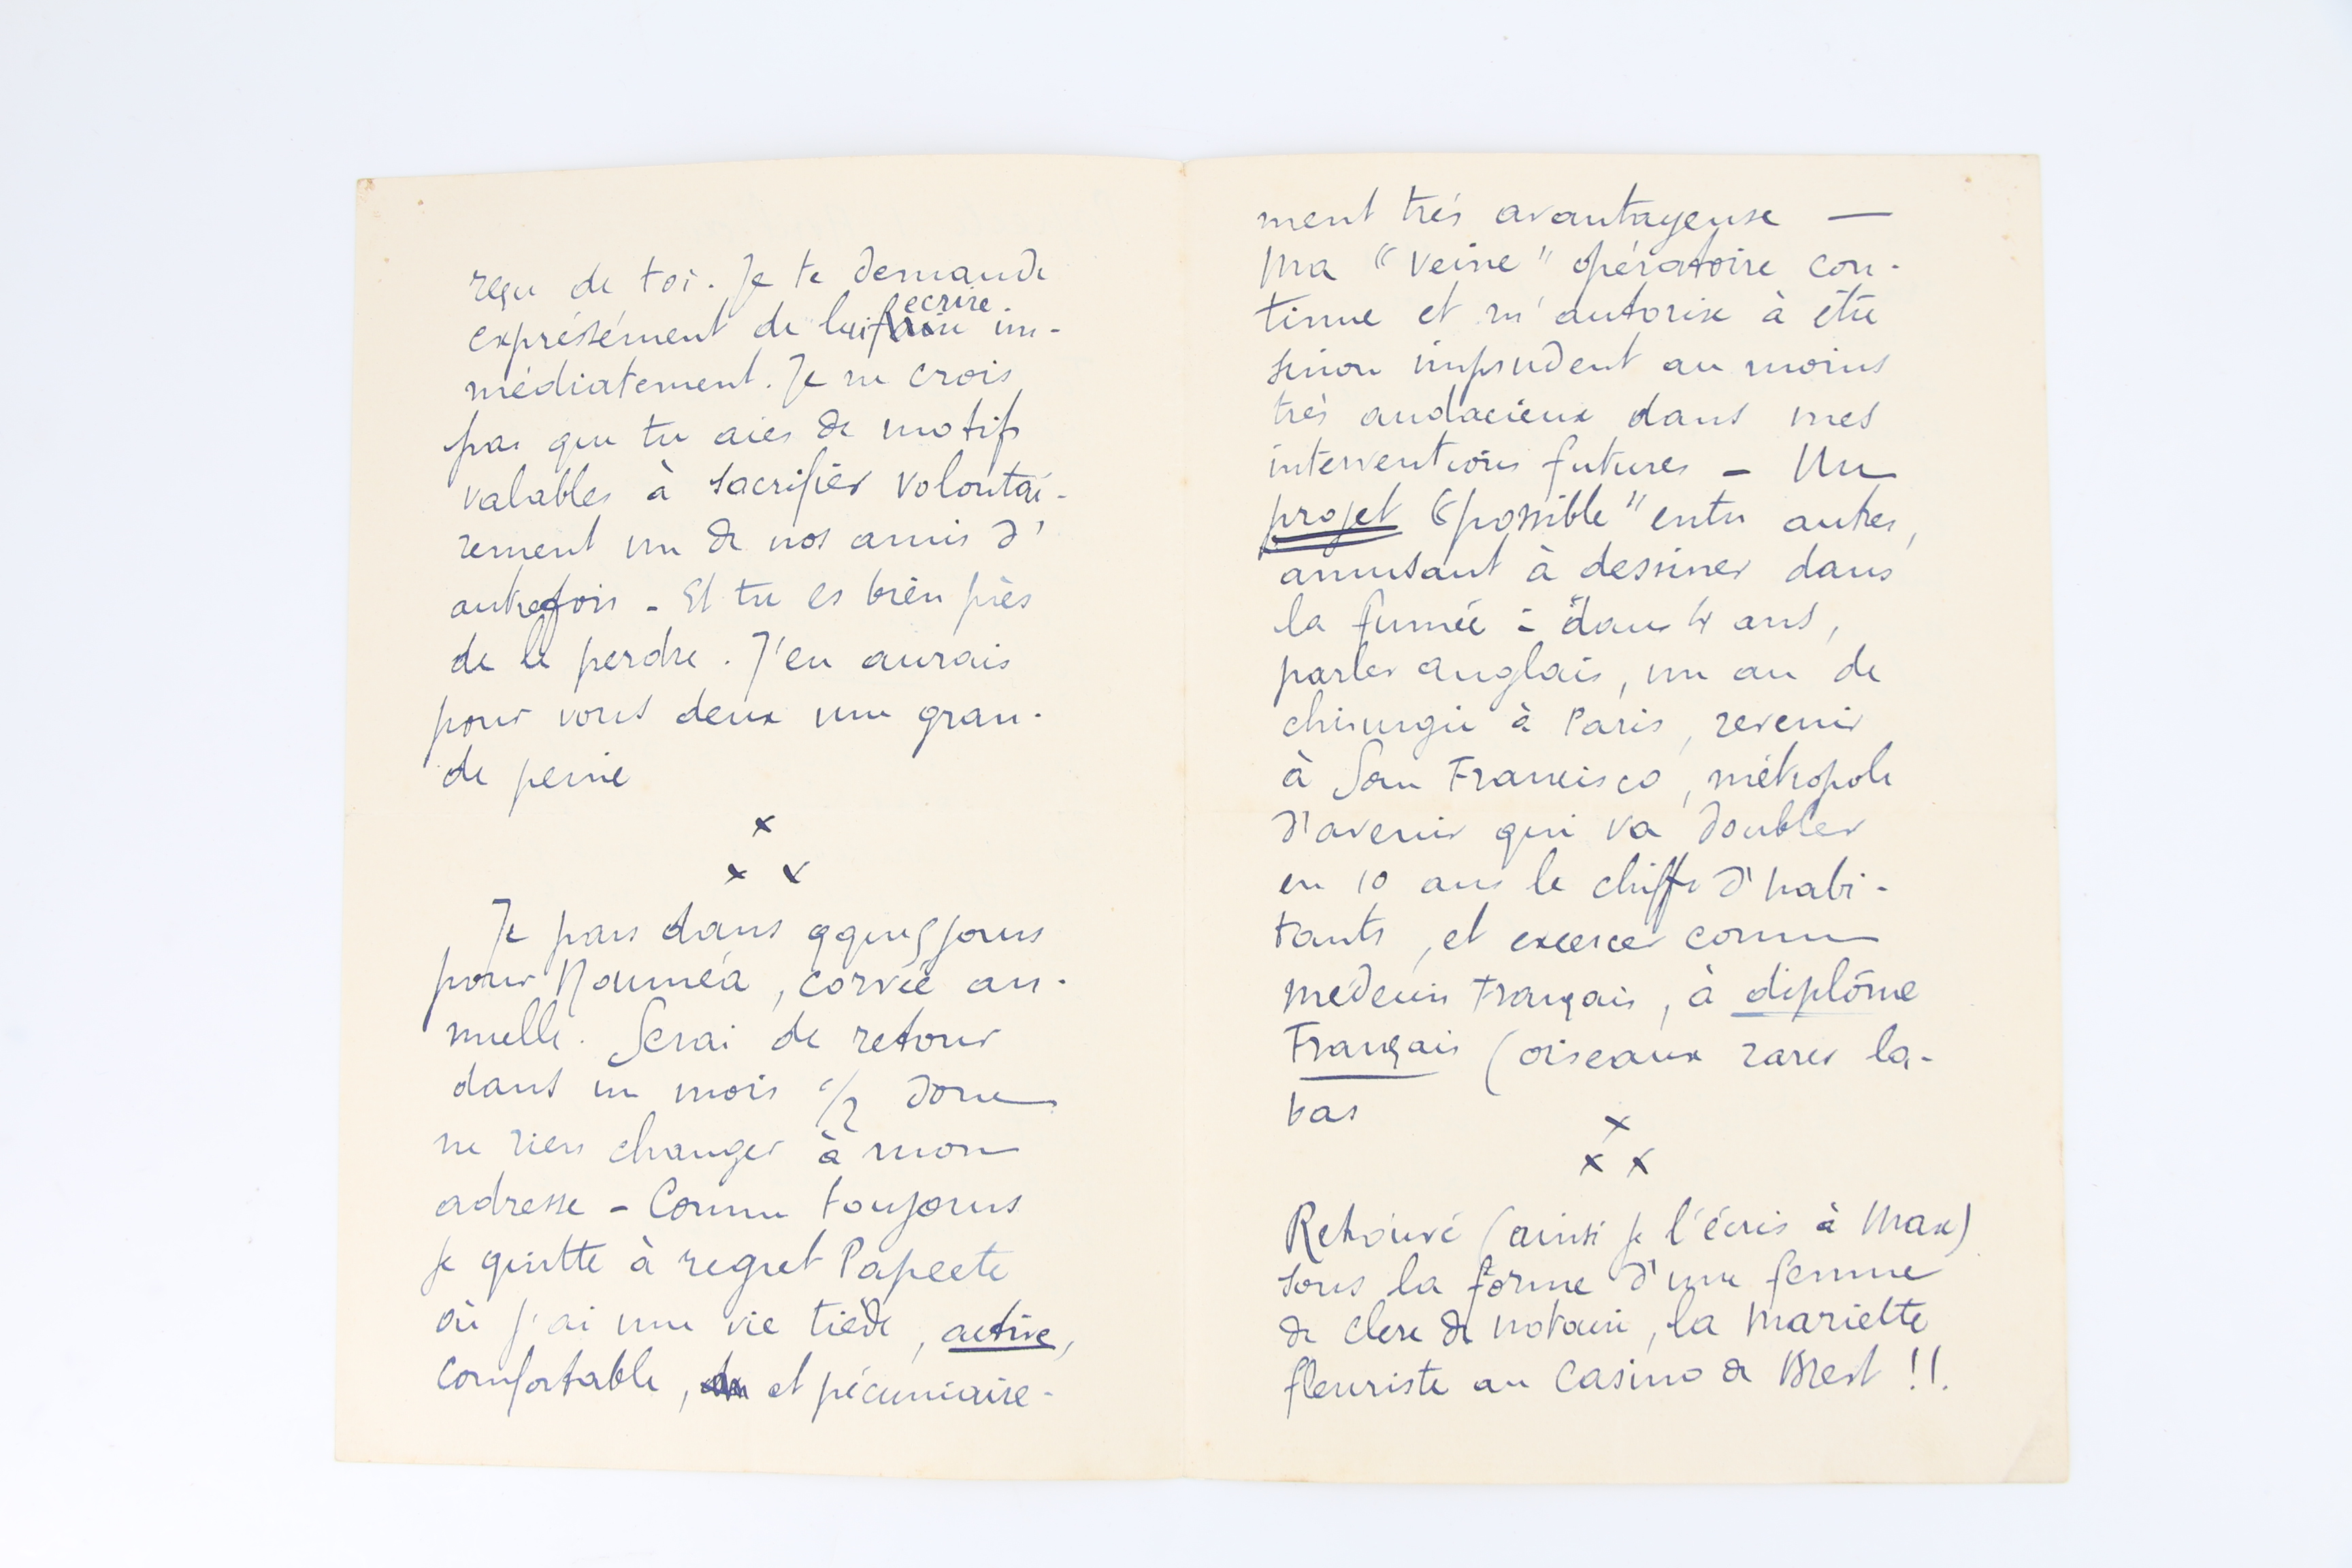 reçu de toi. Je te demande
expréssément de lui écrire im-
médiatement. Je ne crois
pas que tu aies de motifs
valables à sacrifier volontai-
rement un de nos amis d'
autrefois - Et tu es bien près
de le perdre. J'en aurais
pour vous deux une gran-
de peine
x
x x
Je pars dans qques jours
pour Nouméa, corvée an-
nuelle. Serai de retour
dans un mois 1/2 donc
ne rien changer à mon
adresse - Comme toujours
je quitte à regret Papeete
où j'ai une vie tiède, active,
comfortable, et pécuniaire-
ment très avantageuse —
Ma "veine" opératoire con-
tinue et m'autorise à être
sinon imprudent au moins
très audacieux dans mes
interventions futures - Un
projet "possible" entre autres,
amusant à dessiner dans
la fumée : dans 4 ans,
parler anglais, un an de
chirurgie à Paris, revenir
à San Francisco, métropole
d'avenir qui va doubler
en 10 ans le chiffre d'habi-
tants, et excercer comme
médecin Français, à diplôme
Français (oiseaux rares là-
bas
x
x x
Retrouvé (ainsi je l'écris à Max)
sous la forme d'une femme
de clerc de notaire, la Mariette
fleuriste au Casino de Brest !!.